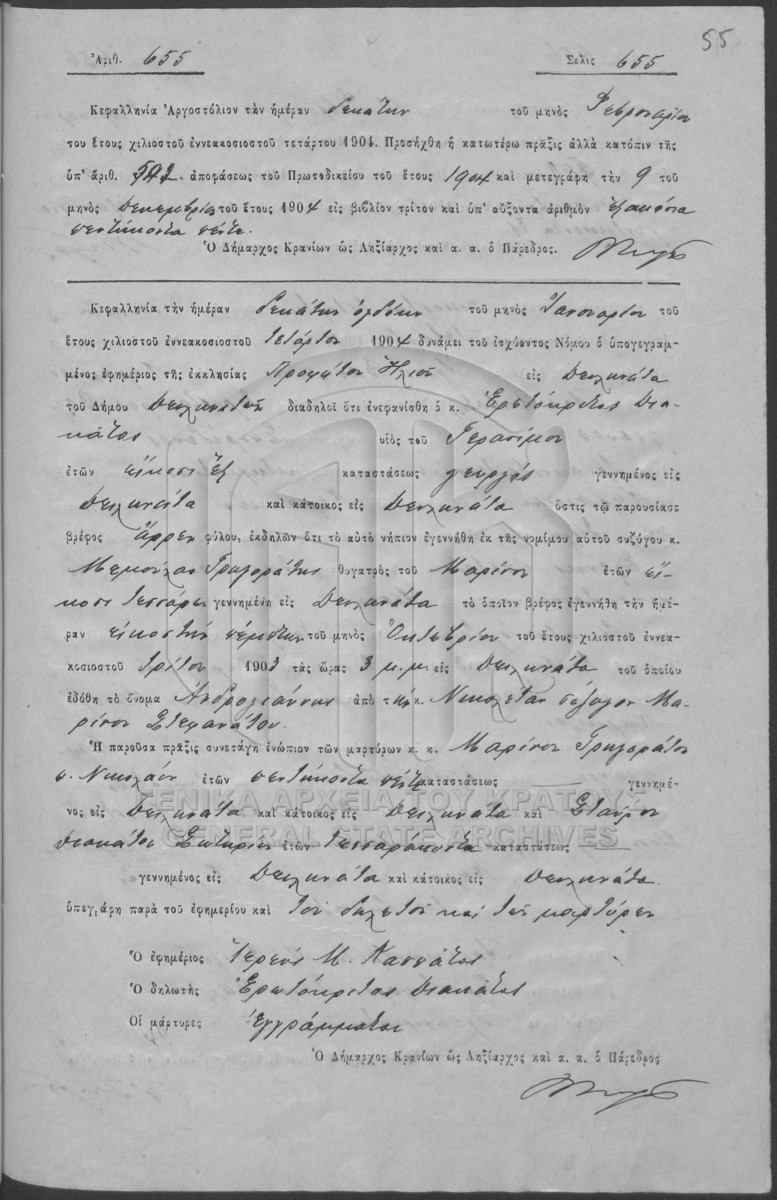 55
Ἀριθ. 655 Σελὶς 655
Κεφαλληνία Ἀργοστόλιον τὴν ἡμέραν δεκάτην τοῦ μηνὸς Φεβρουαρίου
του ἔτους χιλιοστοῦ ἐννεακοσιοστοῦ τετάρτου 1904. Προσήχθη ἡ κατωτέρω πρᾶξις ἀλλὰ κατόπιν τῆς
ὑπ' ἀριθ. 592 ἀποφάσεως τοῦ Πρωτοδικείου τοῦ ἔτους 1904 καὶ μετεγράφη τὴν 9 τοῦ
μηνὸς Δεκεμβρίου τοῦ ἔτους 1904 εἰς βιβλίον τρίτον καὶ ὑπ' αὔξοντα ἀριθμὸν ἑξακόσια
πεντήκοντα πέντε.
Ὁ Δήμαρχος Κρανίων ὡς Ληξίαρχος καὶ α. α. ὁ Πάρεδρος.
Κεφαλληνία τὴν ἡμέραν δεκάτην ὀγδόην τοῦ μηνὸς Ἰανουαρίου τοῦ
ἔτους χιλιοστοῦ ἐννεακοσιοστοῦ τετάρτου 1904 δυνάμει τοῦ ἰσχύοντος Νόμου ὁ ὑπογεγραμ-
μένος ἐφημέριος τῆς ἐκκλησίας Προφήτου Ἠλιοῦ εἰς Δειλινάτα
τοῦ Δήμου Δειλινατῶν διαδηλοῖ ὅτι ἐνεφανίσθη ὁ κ. Ἐρωτόκριτος Δια-
κάτος υἱὸς τοῦ Γερασίμου
ἐτῶν εἴκοσι ἕξ καταστάσεως γεωργός γεννημένος εἰς
Δειλινάτα καὶ κάτοικος εἰς Δειλινάτα ὅστις τῷ παρουσίασε
βρέφος ἄρρεν φύλου, ἐκδηλῶν ὅτι τὸ αὐτὸ νήπιον ἐγεννήθη ἐκ τῆς νομίμου αὐτοῦ συζύγου κ.
Γρηγοράτης θυγατρὸς τοῦ Μαρίνου ἐτῶν εἴ-
κοσι τεσσάρων γεννημένη εἰς Δειλινάτα τὸ ὁποῖον βρέφος ἐγεννήθη τὴν ἡμέ-
ραν εἰκοστὴν πέμπτην τοῦ μηνὸς Ὀκτωβρίου τοῦ ἔτους χιλιοστοῦ ἐννεα-
κοσιοστοῦ τρίτου 1903 τὰς ὥρας 3 μ.μ. εἰς Δειλινάτα τοῦ ὁποίου
ἐδόθη τὸ ὄνομα Ἀνδρογιάννης ἀπὸ τὴν κ. Νικολέταν σύζυγον Μα-
ρίνου Στεφανάτου.
Ἡ παροῦσα πρᾶξις συνετάγη ἐνώπιον τῶν μαρτύρων κ. κ. Μαρίνου Γρηγοράτου
π. Νικολάου ἐτῶν πεντήκοντα πέντε καταστάσεως — γεννημέ-
νος εἰς Δειλινάτα καὶ κάτοικος εἰς Δειλινάτα καὶ Σταύρου
Διακάτου Σωτηρίου ἐτῶν τεσσαράκοντα καταστάσεως
γεννημένος εἰς Δειλινάτα καὶ κάτοικος εἰς Δειλινάτα
ὑπεγράφη παρὰ τοῦ ἐφημερίου καὶ τοῦ δηλωτοῦ καὶ τῶν μαρτύρων
Ὁ ἐφημέριος Ἱερεύς Μ. Καννάτος
Ὁ δηλωτὴς Ἐρωτόκριτος Διακάτος
Οἱ μάρτυρες Ἐγγράμματοι
Ὁ Δήμαρχος Κρανίων ὡς Ληξίαρχος καὶ α. α. ὁ Πάρεδρος
ΓΕΝΙΚΑ ΑΡΧΕΙΑ ΤΟΥ ΚΡΑΤΟΥΣ
GENERAL STATE ARCHIVES